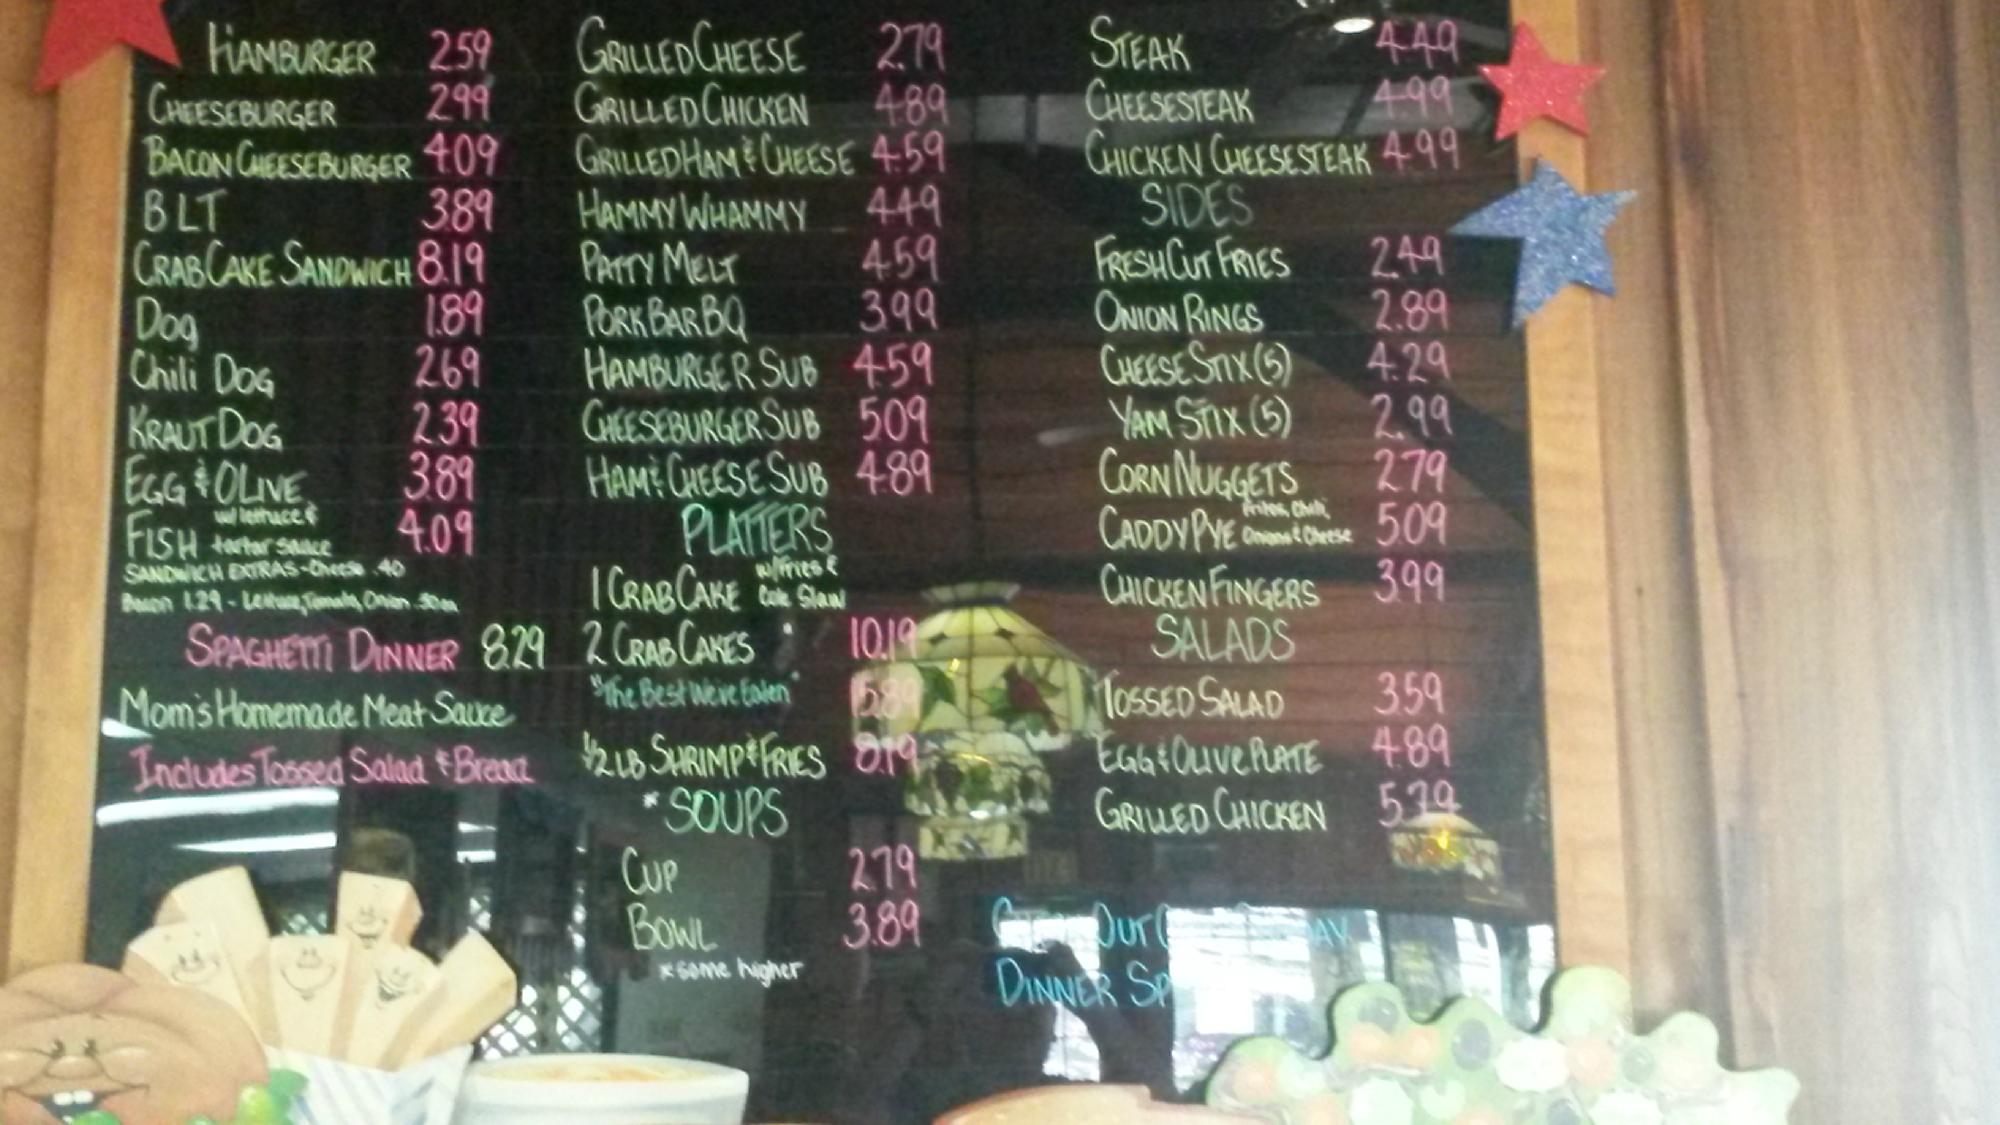 HAMBURGER 2.59
CHEESEBURGER 2.99
BACON CHEESEBURGER 4.09
BLT 3.89
CRAB CAKE SANDWICH 8.19
DOG 1.89
Chili DOG 2.69
KRAUT DOG 2.39
EGG & OLIVE 3.89
w/ lettuce &
FISH tartar sauce 4.09
SANDWICH EXTRAS - Cheese .40
Bacon 1.29 - Lettuce, Tomato, Onion .30 ea
SPAGHETTI DINNER 8.29
Mom's Homemade Meat Sauce
Includes Tossed Salad & Bread
GRILLED CHEESE 2.79
GRILLED CHICKEN 4.89
GRILLED HAM & CHEESE 4.59
HAMMY WHAMMY 4.49
PATTY MELT 4.59
PORK BAR BQ 3.99
HAMBURGER SUB 4.59
CHEESEBURGER SUB 5.09
HAM & CHEESE SUB 4.89
PLATTERS
w/ Fries &
1 CRAB CAKE Cole Slaw
2 CRAB CAKES " 10.19
"The Best We've Eaten" 15.89
1/2 LB SHRIMP & FRIES 8.19
* SOUPS
CUP 2.79
BOWL 3.89
* some higher
STEAK 4.49
CHEESESTEAK 4.99
CHICKEN CHEESESTEAK 4.99
SIDES
FRESH CUT FRIES 2.49
ONION RINGS 2.89
CHEESE STIX (5) 4.29
YAM STIX (5) 2.99
CORN NUGGETS 2.79
Fritos, Chili,
CADDY PYE Onions & Cheese 5.09
CHICKEN FINGERS 3.99
SALADS
TOSSED SALAD 3.59
EGG & OLIVE PLATE 4.89
GRILLED CHICKEN 5.79
OUT
DINNER